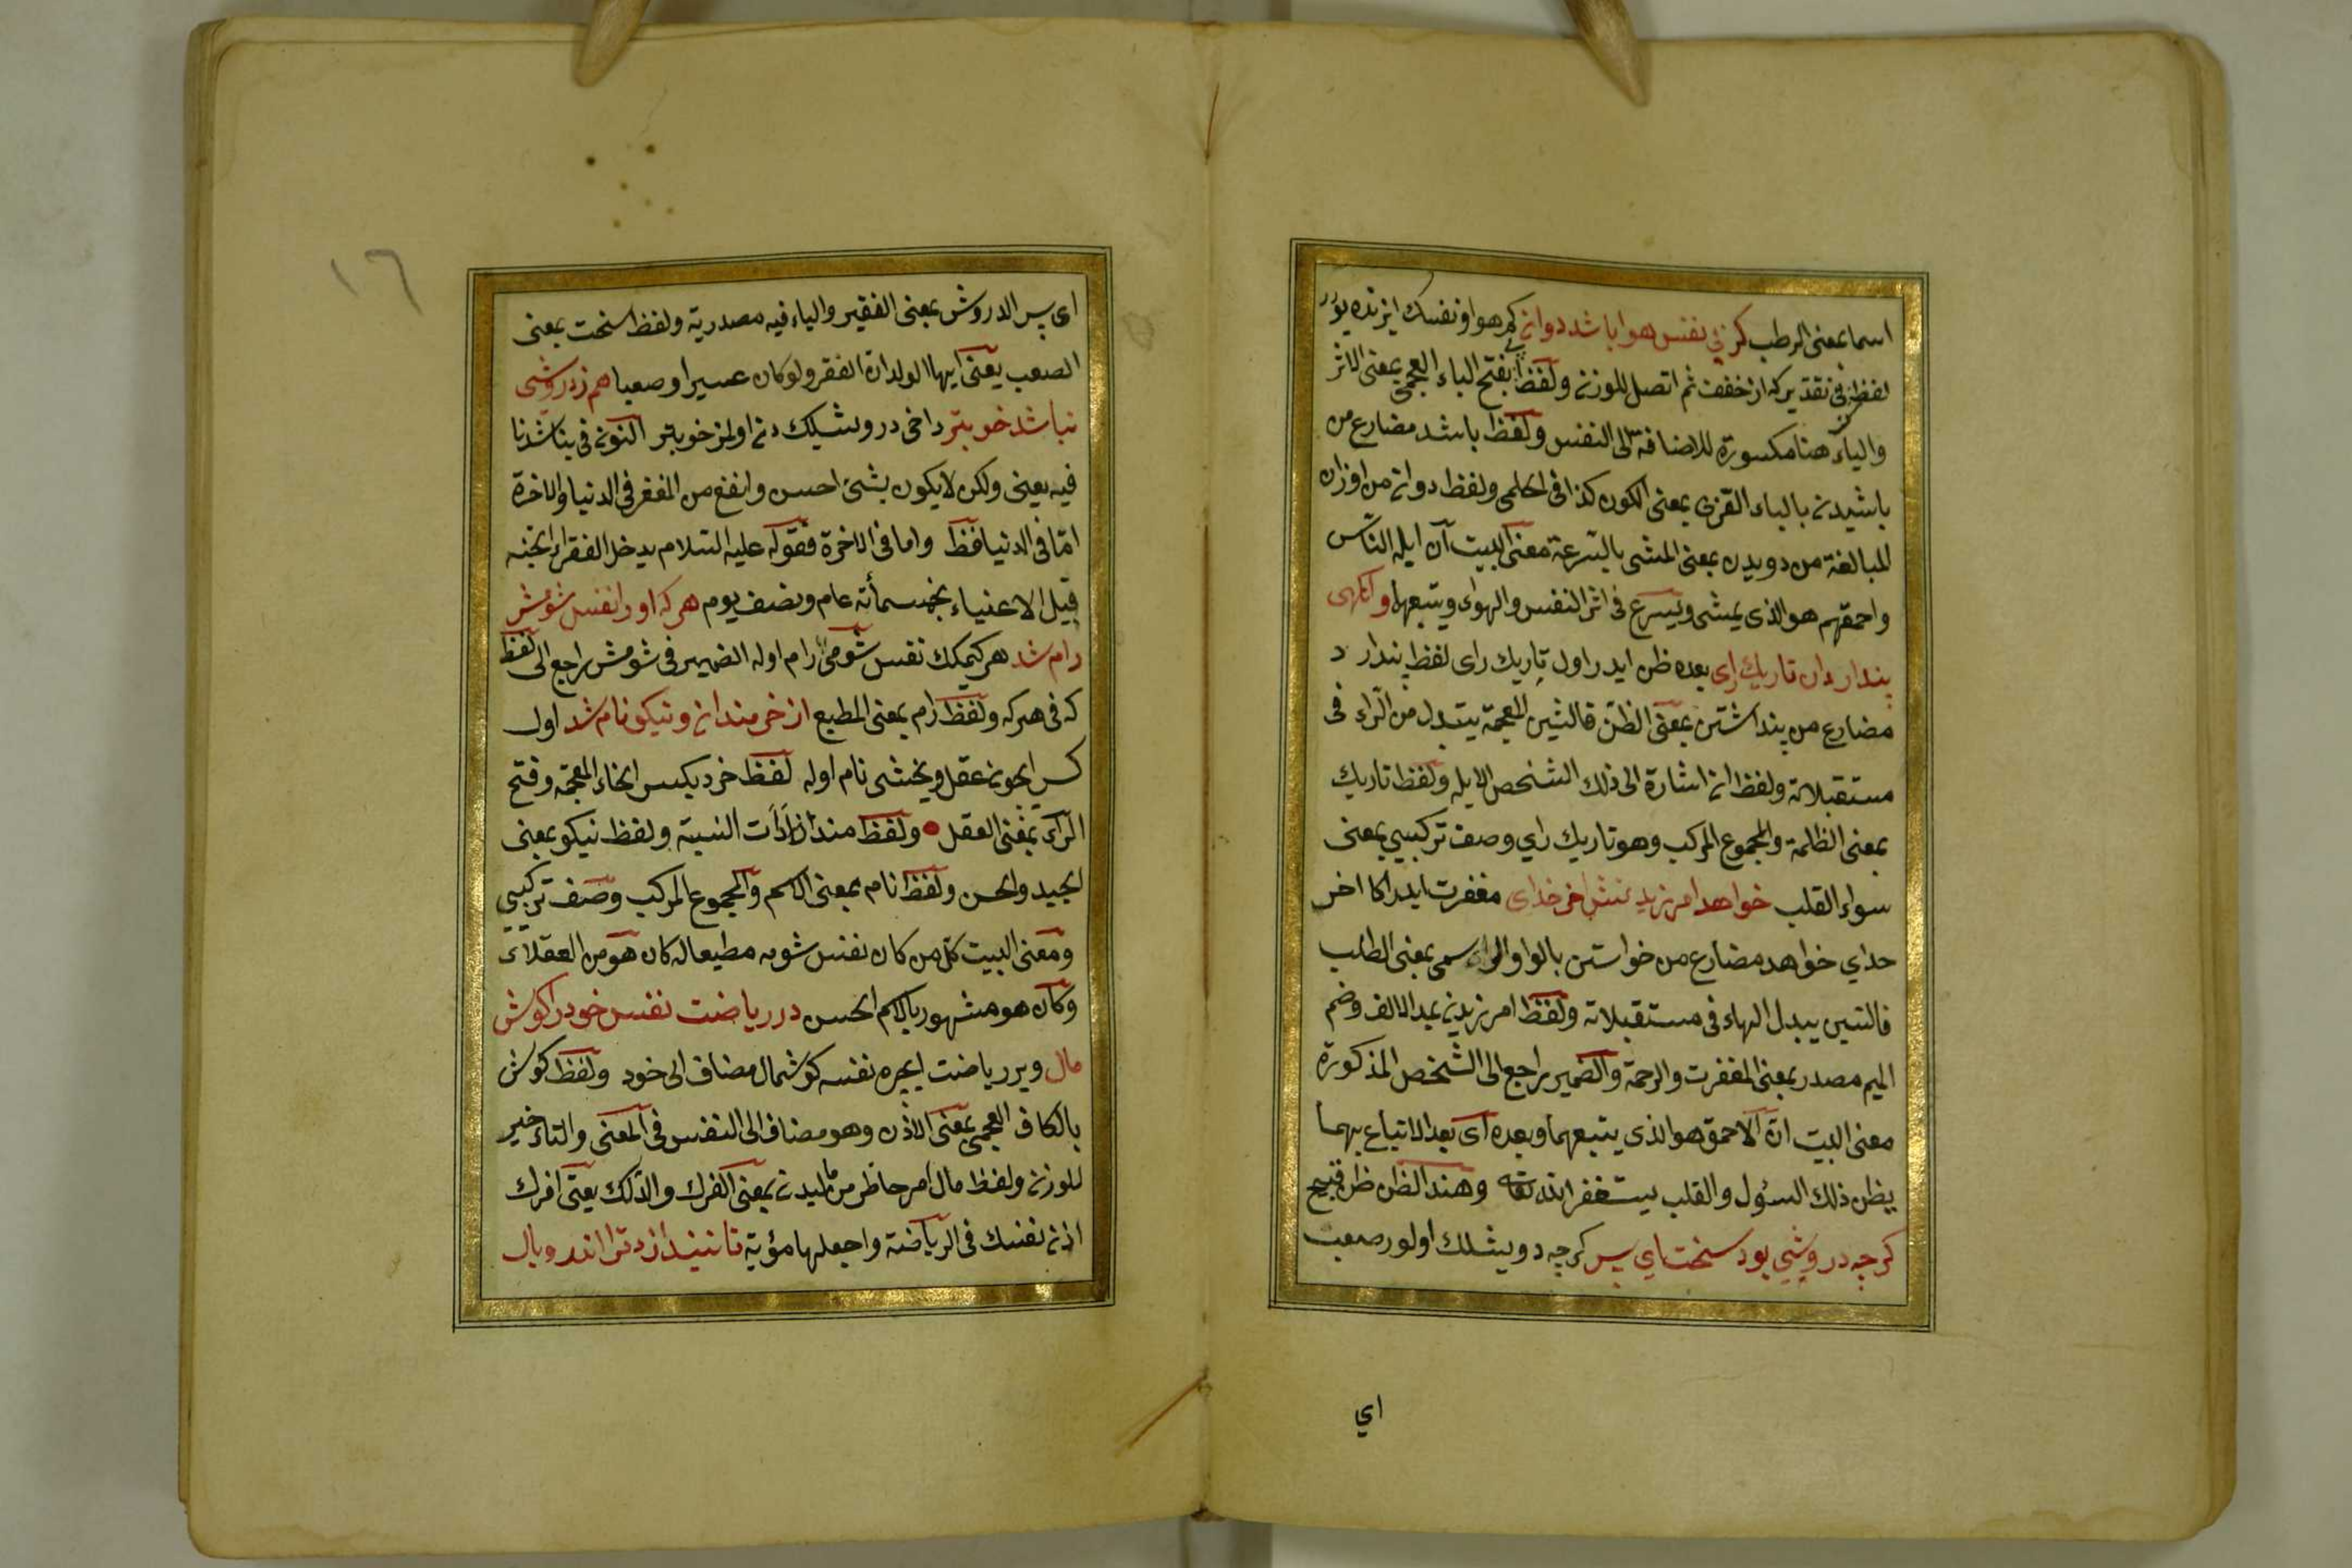 اسما بمعنى الرطب كز پى نفس هوا باشد دوان كم هوا و نفسك ايزنده يورر
لفظ پى تقديركه از خفف ثم اتصل للوزن ولفظ بفتح الباء العجمى بمعنى الاثر
والياء هنا مكسورة للاضافة الى النفس ولفظ باشد مضارع من
باشيدن بالباء العربى بمعنى الكون كذا فى الحلمى ولفظ دوان من اوزان
المبالغة من دويدن بمعنى المشى بالسرعة معنى البيت ان ابله الناس
واحمقهم هو الذى يمشى ويسرع فى اثر النفس والهواء ويتبعهما وانكهى
پندارد ان تاريك راى بعده ظن ايدر اول تاريك راى لفظ پندارد
مضارع من پنداشتن بمعنى الظن فالشين المعجمة يتبدل من الراء فى
مستقبلاته ولفظ ان اشارة الى ذلك الشخص الابله ولفظ تاريك
بمعنى الظلمة والمجموع المركب وهو تاريك راي وصف تركيبي بمعنى
سواء القلب خواهد امرزيدنش اخر خداى مغفرت ايدر اكا اخر
خداي خواهد مضارع من خواستن بالواو الرسمى بمعنى الطلب
فالسين يبدل الهاء فى مستقبلاته ولفظ امرزيدن بمد الالف وضم
الميم مصدر بمعنى المغفرت والرحمة والضمير راجع الى الشخص المذكورة
معنى البيت ان الاحمق هو الذى يتبعهما وبعده اى بعد الاتباع بهما
يظن ذلك السؤل والقلب يستغفر الله تعالى وهند الظن ظن قبيح
كرچه درويشي بود سخت اي پسر كرچه درويشلك اولور صعب
اي
١٦
اى پسر الدروش بمعنى الفقير والياء فيه مصدرية ولفظ سخت بمعنى
الصعب يعنى ايها الولد ان الفقر ولو كان عسيرا وصعبا هم ز درويشى
نباشد خوبتر داخى درويشلك دن اولمز خوبتر النون فى نباشد نا
فيه يعنى ولكن لا يكون بشئ احسن وانفع من الفقر فى الدنيا والاخرة
امّا فى الدنيا فظ واما فى الاخرة فقوله عليه السلام يدخل الفقراء الجنه
قبل الاغنياء بخمسمأئة عام ونصف يوم هر كه او را نفس شومش
رام شد هر كيمكك نفس شومى رام اوله الضمير فى شومش راجع الى لفظ
كه فى هركه ولفظ رام بمعنى المطيع از خرمندان و نيكو نام شد اول
كسه ايچون عقل و يخشى نام اوله لفظ خرد بكسر الخاء المعجمة وفتح
الراء بمعنى العقل ولفظ مند از ادات النسبة ولفظ نيكو بمعنى
الجيد والحسن ولفظ نام بمعنى الاسم والمجموع المركب وصف تركيبي
ومعنى البيت كل من كان نفس شومه مطيعا له كان هو من العقلاء
وكان هو مشهور بالاسم الحسن در رياضت نفس خود را كوش
مال وير رياضت ايچره نفسه كوشمال مضاف الى خود ولفظ كوش
بالكاف العجمى بمعنى الاذن وهو مضاف الى النفس فى المعنى والتاء خير
للوزن ولفظ مال امر حاظر من ماليدن بمعنى الفرك والدلك يعنى افرك
اذن نفسك فى الرياضة واجعلها مؤية تا نيندازد ترا اندر وبال